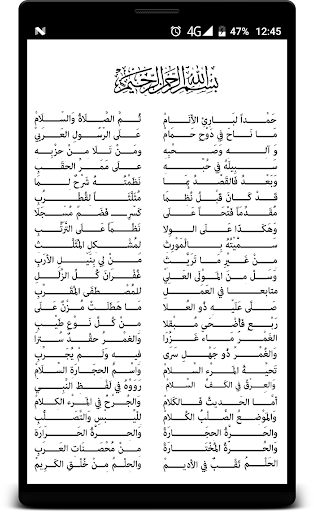 4G 12:45
بسم الله الرحمن الرحيم
حَمْداً لبَارِئِ الأنَامْ ثُمَّ الصَّلاَةُ وَالسَّلاَمْ
مَا نَاحَ فِي دَوْحٍ حَمَامْ عَلَى الرَّسُولِ العَرَبِي
وَ آلـهِ وَ صَحْبِهِ وَمَنْ تَلاَ مِنْ حِزْبِهِ
سَبِيلَهُ فِي حُبِّهِ عَلَى مَمَرِّ الحِقَبِ
وَبَعْدُ فَالقَصْدُ بِمَا نَظَمْتُهُ شَرْحٌ لِمَا
قَدْ كَانَ قَبْلُ نَظَمَا مُثَلَّثًا لقُطْرُبِ
مُقَدِّماً فَتْحاً عَلَى كَسْرٍ فَضَمٍّ مُسْجَلاَ
وَهَكَذَا عَلَى الـولا نَظْماً عَلَى التَّرَتُّبِ
سَمَّيْتُهُ بِالمُورِثْ لمُشْكِلِ المُثَلَّثْ
مِنْ غَيْرِ مَا تَرَيُّثْ مَنْ لِي بِنَيْلِ الأَرَبِ
وَسَلْ مِنَ المَوْلَى العَلِي غُفْرَانَ كُلِّ الزَّلَلِ
متابعا فِي العَمَلِ للمُصْطَفَى المُقَرَّبِ
صَلَّى عَلَيْهِ ذُو العُلا مَا هَطَلَتْ مُزْنٌ عَلَى
رَبْعٍ فَأضْحَى مُبقلا مِنْ كُلِّ نَوْعٍ طَيِّبِ
الغَمْرُ مَاء غَزُرَا والغِمْرُ حقْد سُتِرَا
وَالغُمْرُ ذُو جَهْلٍ سرى فِيهِ وَلَمْ يُجَرِّبِ
تَحِيةُ المَرْءِ السَّلامْ وَاسمُ الحِجَارَة السِّلامْ
وَالعِرْقُ فِي الكَفِّ السُّلامْ رَوَوْهُ فِي لَفْظِ النَّبِي
أمَّا الحَدِيثُ فَالكَلاَمْ وَالجُرْحُ فِي المَرْءِ الكِلاَمْ
والمَوْضِعُ الصَّلْبُ الكُلاَمْ لليُبْسِ وَالتَّصَلُّبِ
وَالحَرَّةُ الحِجَارَةْ وَالحِرَّةُ الحَرَارَةْ
وَالحُرَّةُ المُخْتَارَةْ مِنْ مُحْصَنَاتِ العَرَبِ
الحَلَمُ نَقَبٌ فِي الأدِيمْ والحِلْمُ مِنْ خُلْقِ الكَرِيمْ